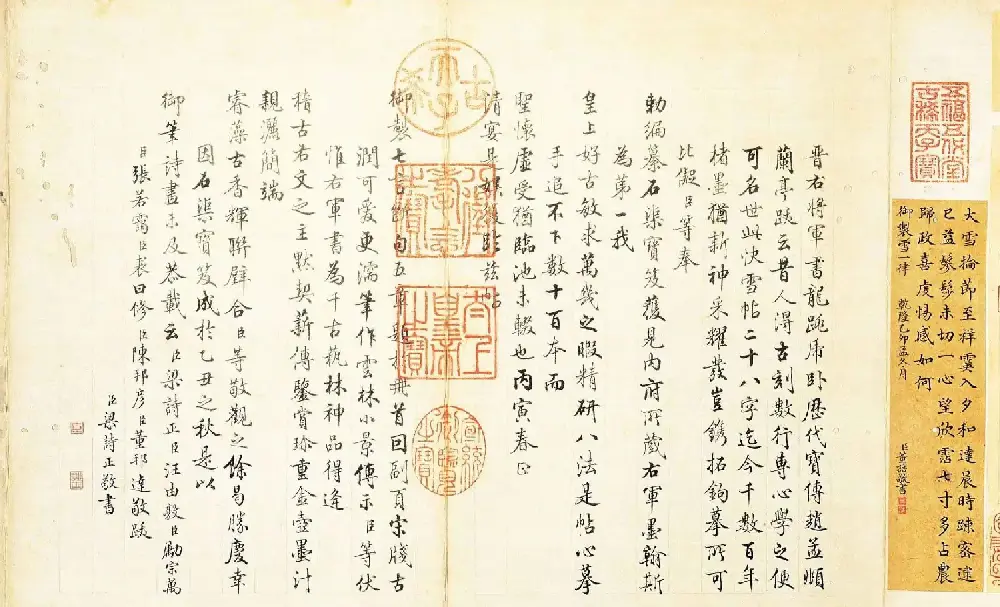 五福五代堂古稀天子寶
大雪掄節至祥霙入夕和達晨時疎密逮
巳益鬖鬖未切一心望欣霑七寸多占農
歸政喜虔惕感如何
御製雪一律 乾隆乙卯孟冬月
臣董誥敬書
晉右將軍書龍跳虎臥歷代寶傳趙孟頫
蘭亭跋云昔人得古刻數行專心學之便
可名世此快雪帖二十八字迄今千數百年
楮墨猶新神采耀發豈鐫拓鉤摹所可
比儗臣等奉
勅編纂石渠寶笈獲見內府所藏右軍墨翰斯
為第一我
皇上好古敏求萬幾之暇精研八法是帖心摹
手追不下數十百本而
聖懷虛受猶臨池未輟也丙寅春正
清宴是娛於茲帖
御製七言絕句五章題於冊首回副頁宋牋古
潤可愛更濡筆作雲林小景傳示臣等伏
惟右軍書為千古藝林神品得逢
稽古右文之主默契薪傳鑒賞珍重金壺墨汁
親灑簡端
睿藻古香輝聯璧合臣等敬觀之餘曷勝慶幸
因石渠寶笈成於乙丑之秋是以
御筆詩畫未及恭載云臣梁詩正臣汪由敦臣勵宗萬
臣張若靄臣裘曰修臣陳邦彥臣董邦達敬跋
臣梁詩正敬書
古稀天子
八徵耄念之寶
太上皇帝之寶
宣統御覽之寶